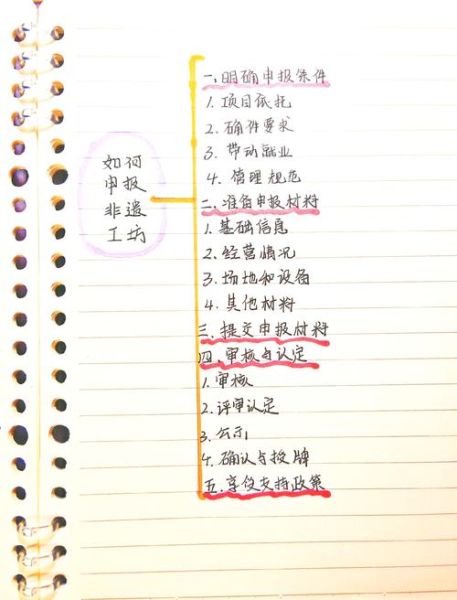 如何
申报
非遗
工坊
一、明确申报条件
1. 项目依托
2. 确件要求
3. 带动就业
4. 管理规范
二、准备申报材料
1. 基础信息
2. 经营情况
3. 场地和设备
4. 其他材料
三、提交申报材料
四、审核与认定
1. 审核
2. 评审认定
3. 公示
4. 确认与授牌
五、享受支持政策